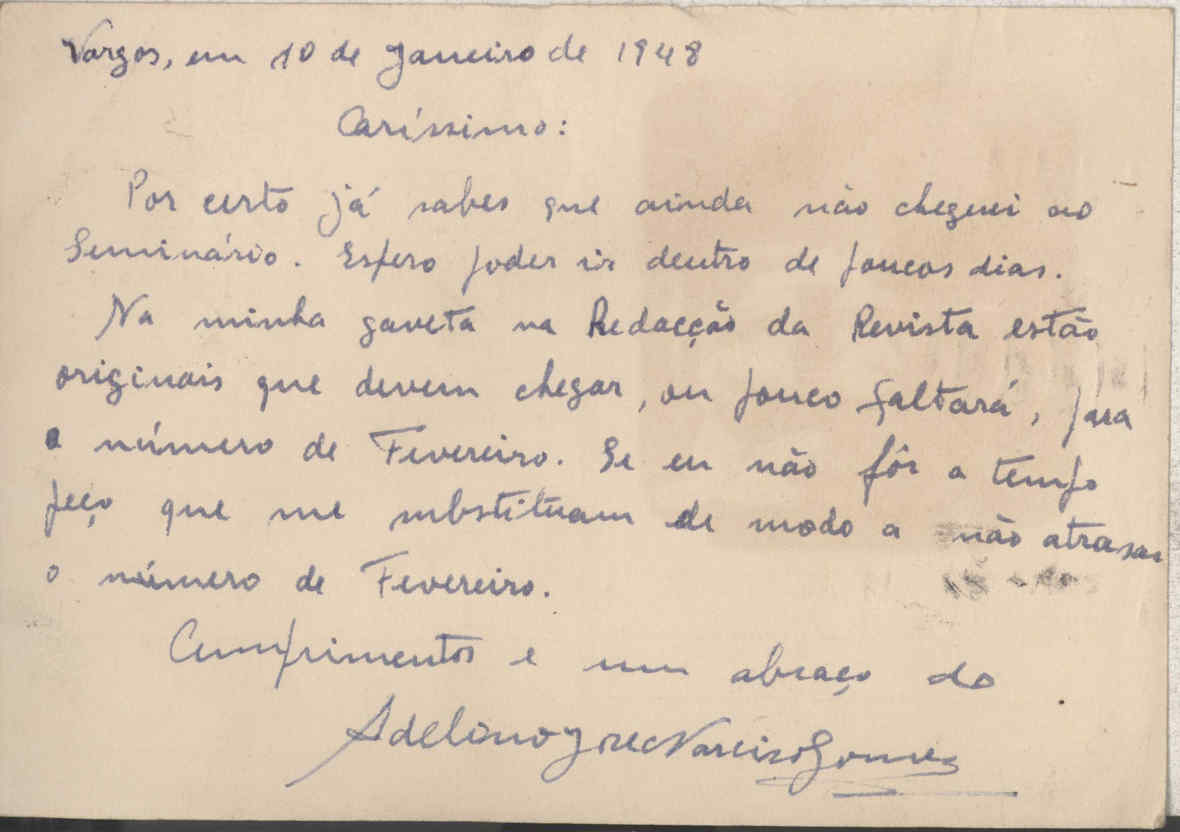 Vargos, em 10 de Janeiro de 1948
Caríssimo:
Por certo já sabes que ainda não cheguei ao
Seminário. Espero poder ir dentro de poucos dias.
Na minha gaveta na Redacção da Revista estão
originais que devem chegar, ou pouco faltará, para
o número de Fevereiro. Se eu não fôr a tempo
peço que me substituam de modo a não atrasar
o número de Fevereiro.
Cumprimentos e um abraço do
Adelino José Narciso Gomes